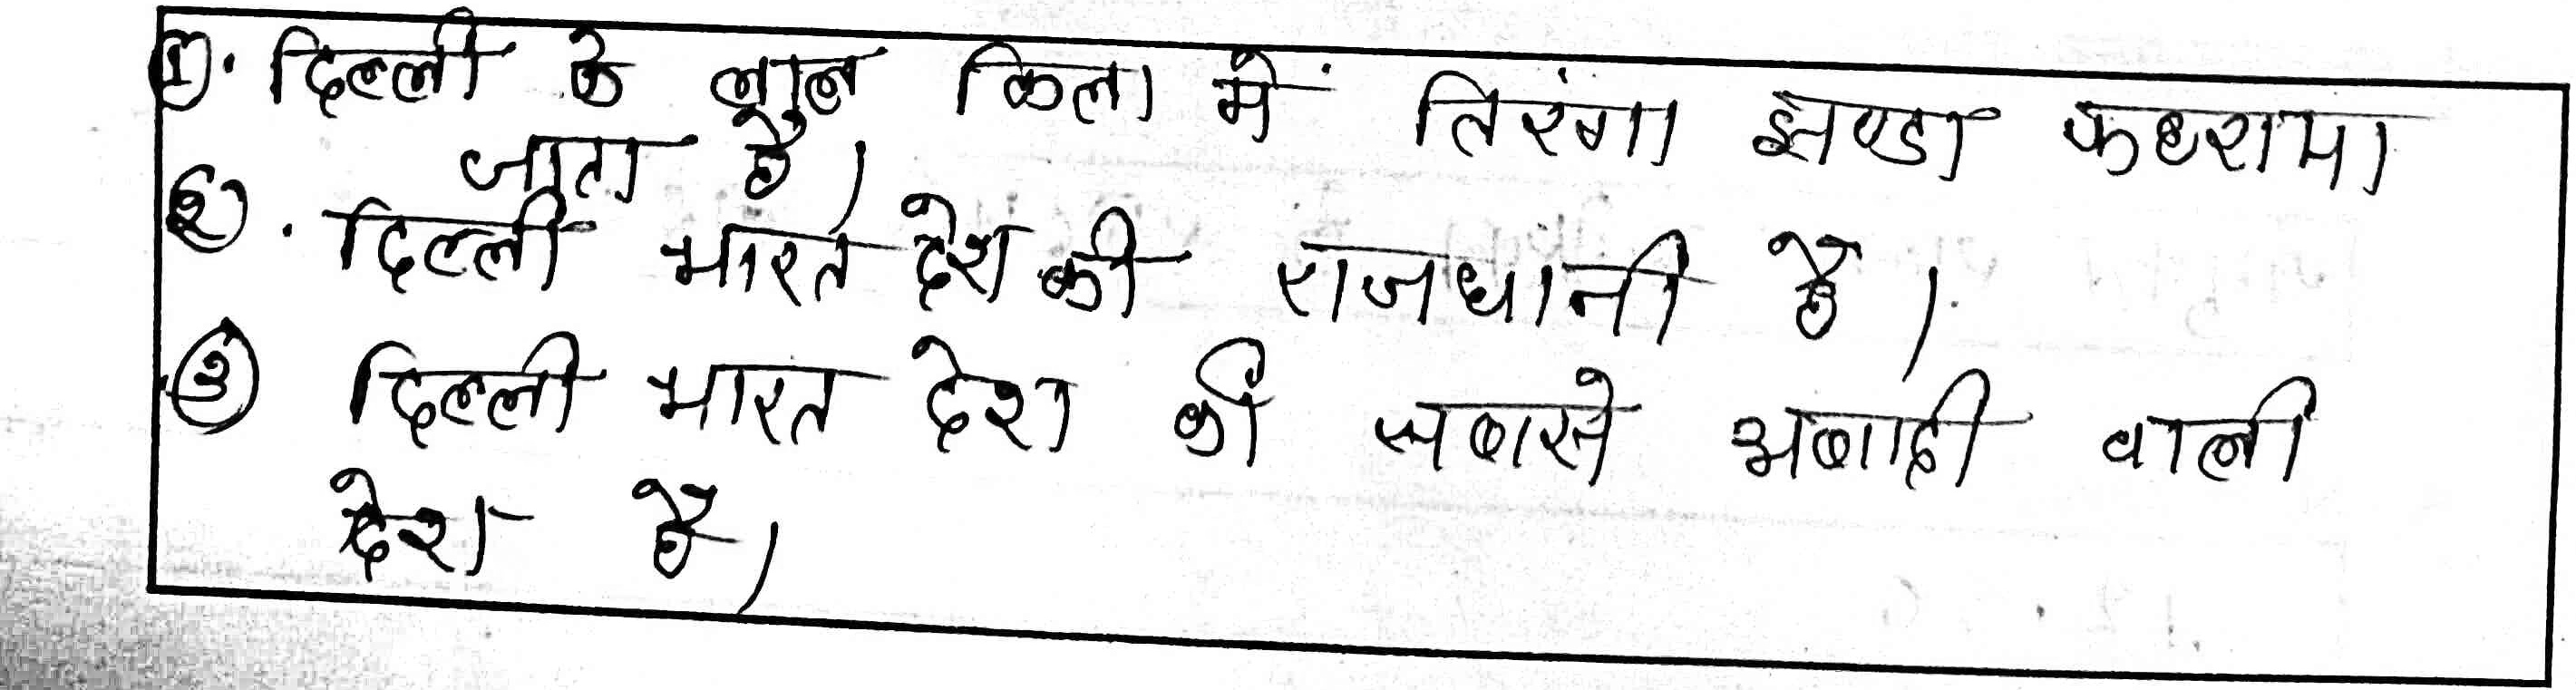 ①. दिल्ली के लाल किला में तिरंगा झण्डा फहराया
जाता है।
②. दिल्ली भारत देश की राजधानी है।
③ दिल्ली भारत देश की सबसे अबादी वाली
देश है।